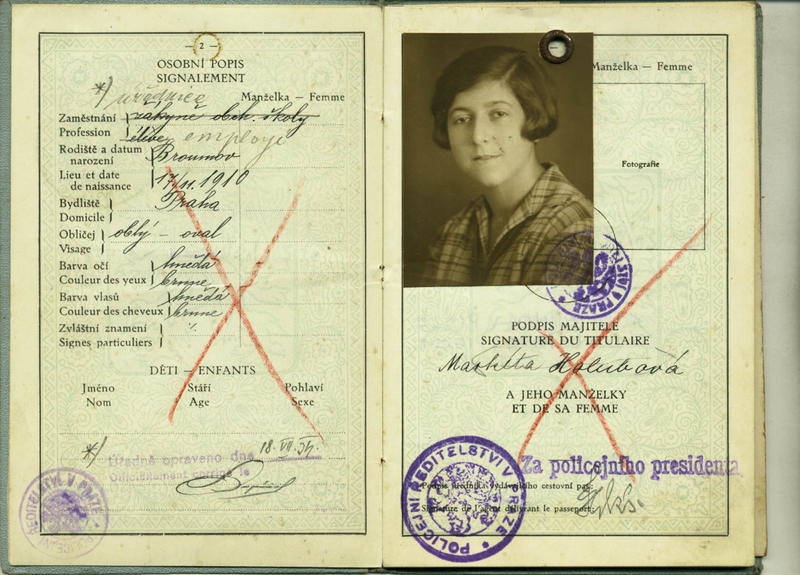 – 2 –
OSOBNÍ POPIS
SIGNALEMENT
*) úřednice
Manželka — Femme
Zaměstnání
Profession
žákyně obch. školy
élève employé
Rodiště a datum
narození
Broumov
Lieu et date
de naissance
17/11. 1910
Bydliště
Domicile
Praha
Obličej
Visage
oblý - oval
Barva očí
Couleur des yeux
hnědá
brune
Barva vlasů
Couleur des cheveux
hnědá
brune
Zvláštní znamení
Signes particuliers
./.
DĚTI – ENFANTS
Jméno Stáří Pohlaví
Nom Age Sexe
*) Úředně opraveno dne 18. VII. 34.
Officiellement corrigé le
ŘEDITELSTVÍ V PRAZE
POLICEJNÍ
Manželka — Femme
Fotografie
V PRAZE
PODPIS MAJITELE
SIGNATURE DU TITULAIRE
Markéta Holubová
A JEHO MANŽELKY
ET DE SA FEMME
Za policejního presidenta
Podpis úředníka vydávajícího cestovní pas:
Signature de l'agent délivrant le passeport:
POLICEJNÍ ŘEDITELSTVÍ V PRAZE